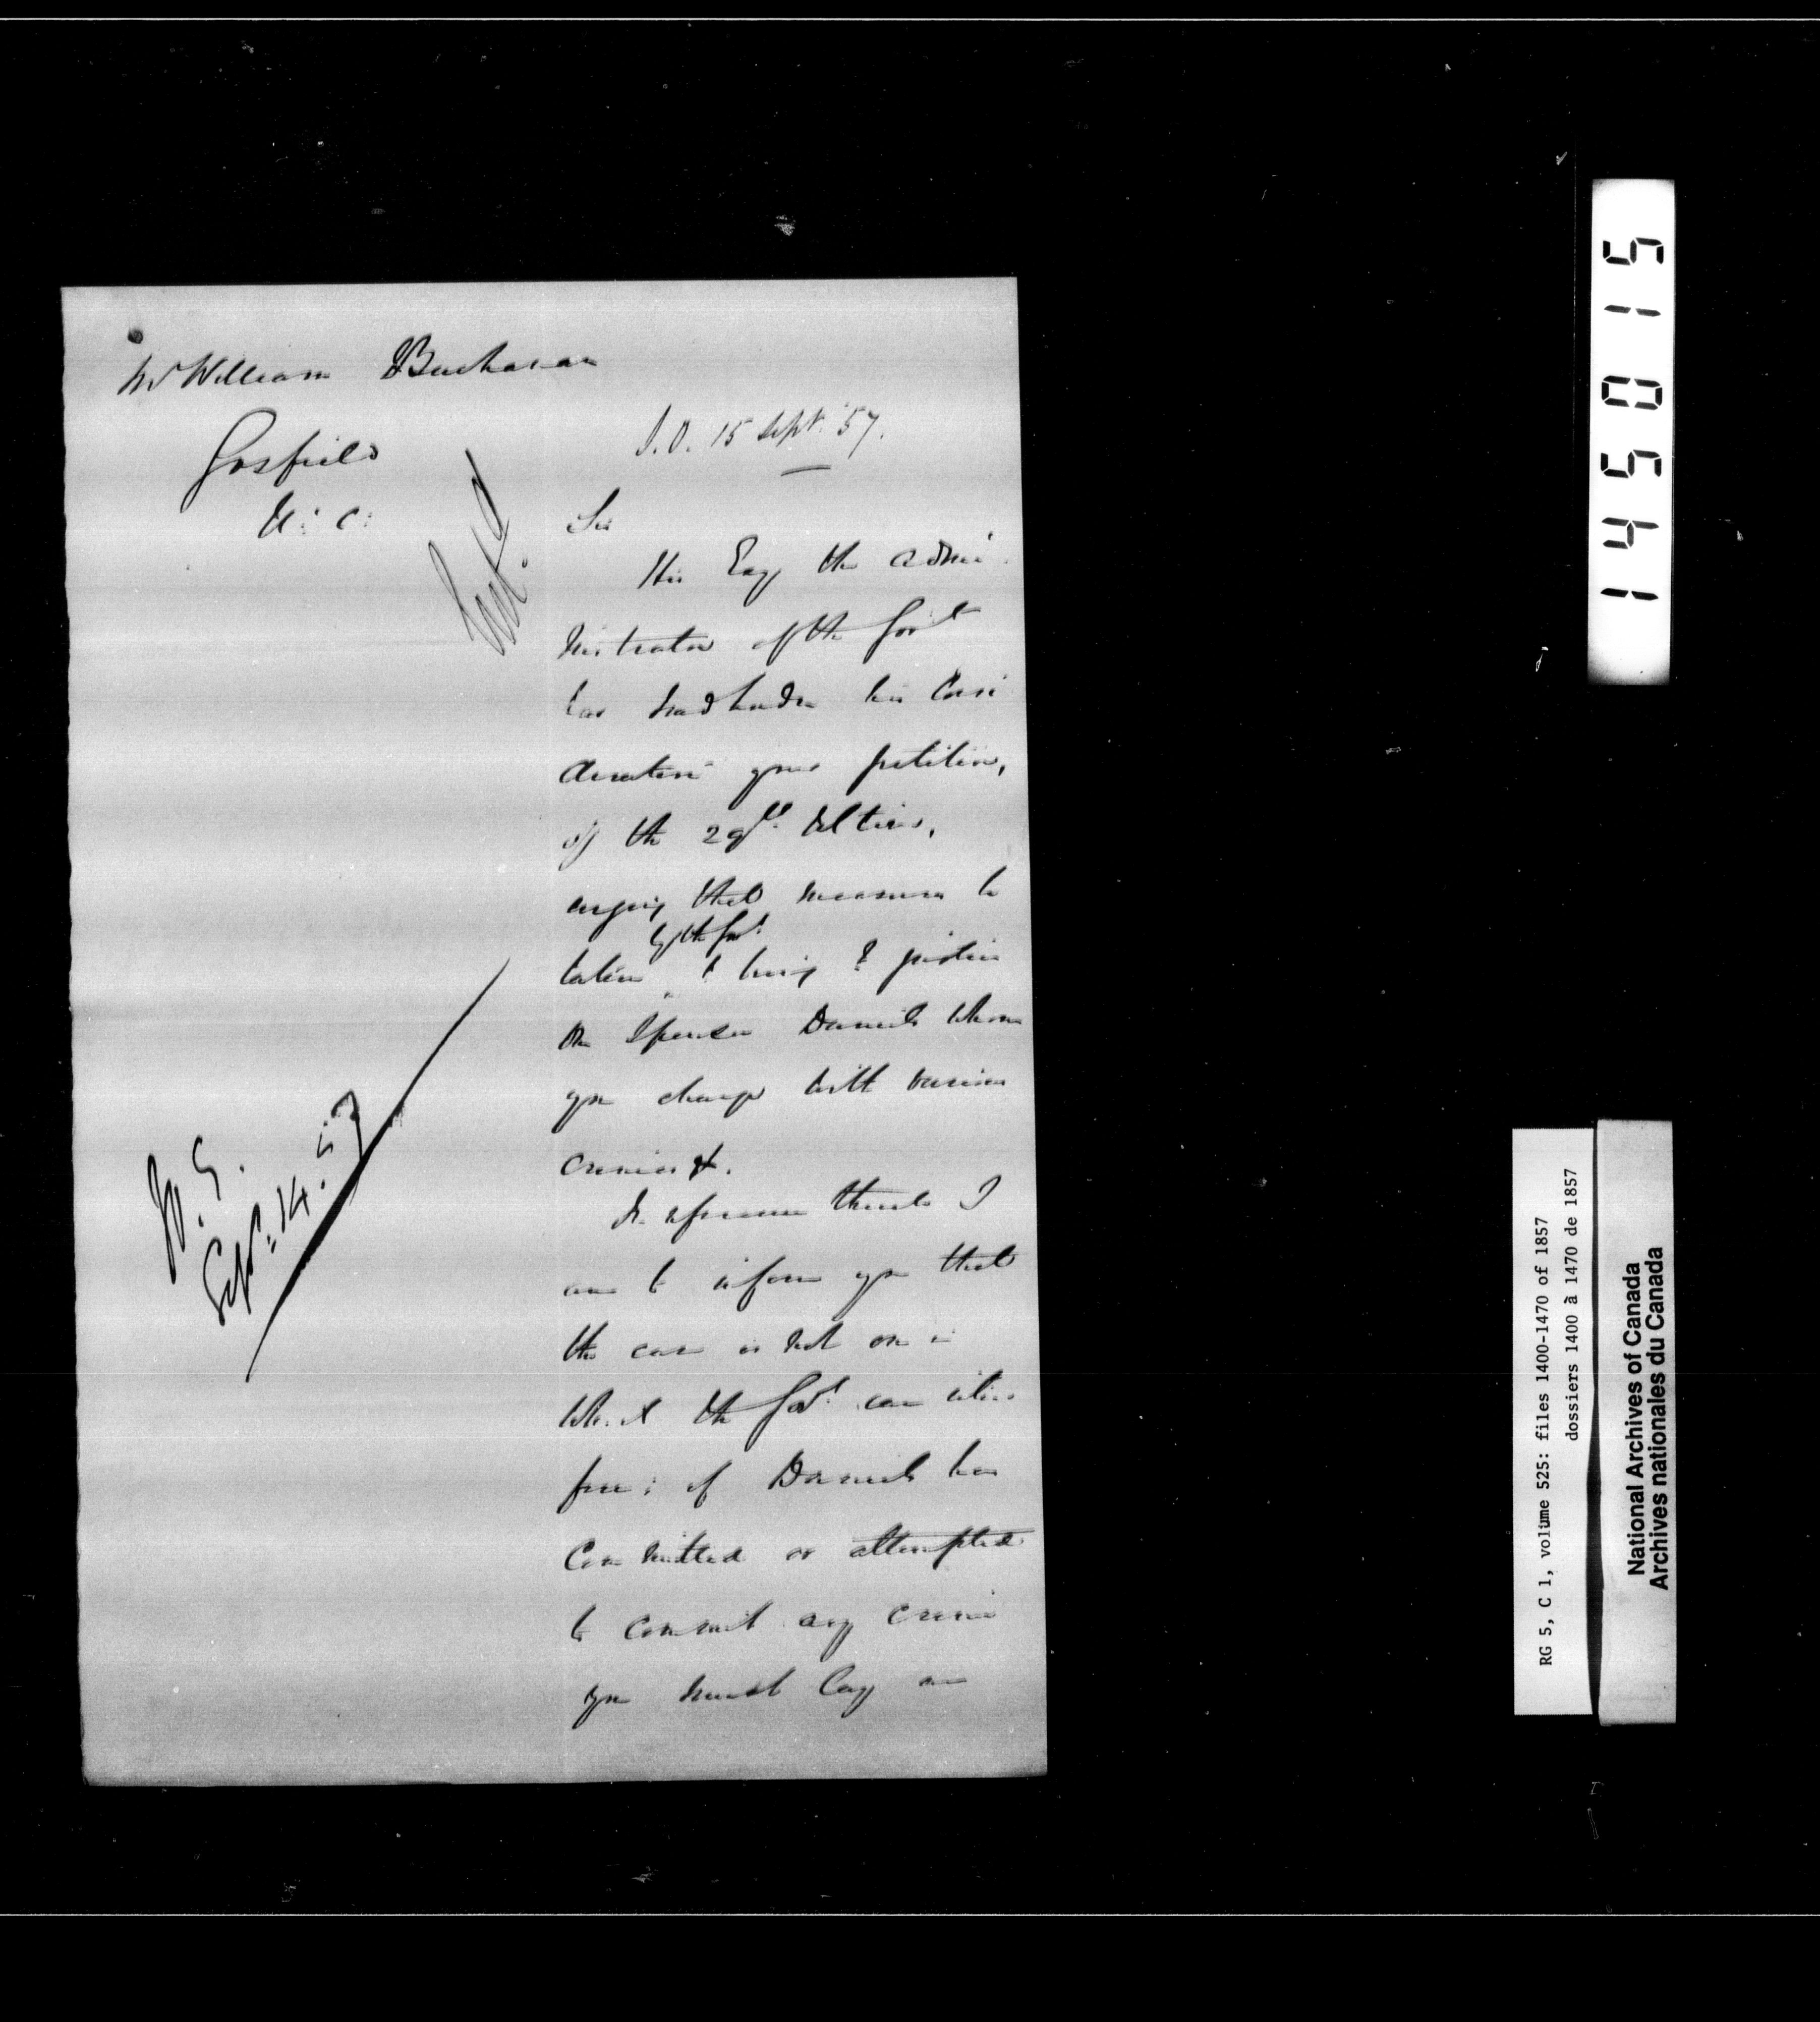 Mr William Buchanan
Gosfield
U: C:
S.O. 15 Sept. '57.
Entd.
Sir
His Excy the Admi
nistrator of the Govt
has had under his Consi
deration your petition,
of the 29th Ultimo,
urging that measures be
taken by the Govt to bring to justice
one Spencer Daniels whom
you charge with various
crimes &.
In reference thereto I
am to inform you that
the case is not one in
which the Govt can inter
fere: if Daniels has
Committed or attempted
to commit any crime
you must lay an
Sept. 14. 57
145015
RG 5, C 1, volume 525: files 1400-1470 of 1857
dossiers 1400 à 1470 de 1857
National Archives of Canada
Archives nationales du Canada